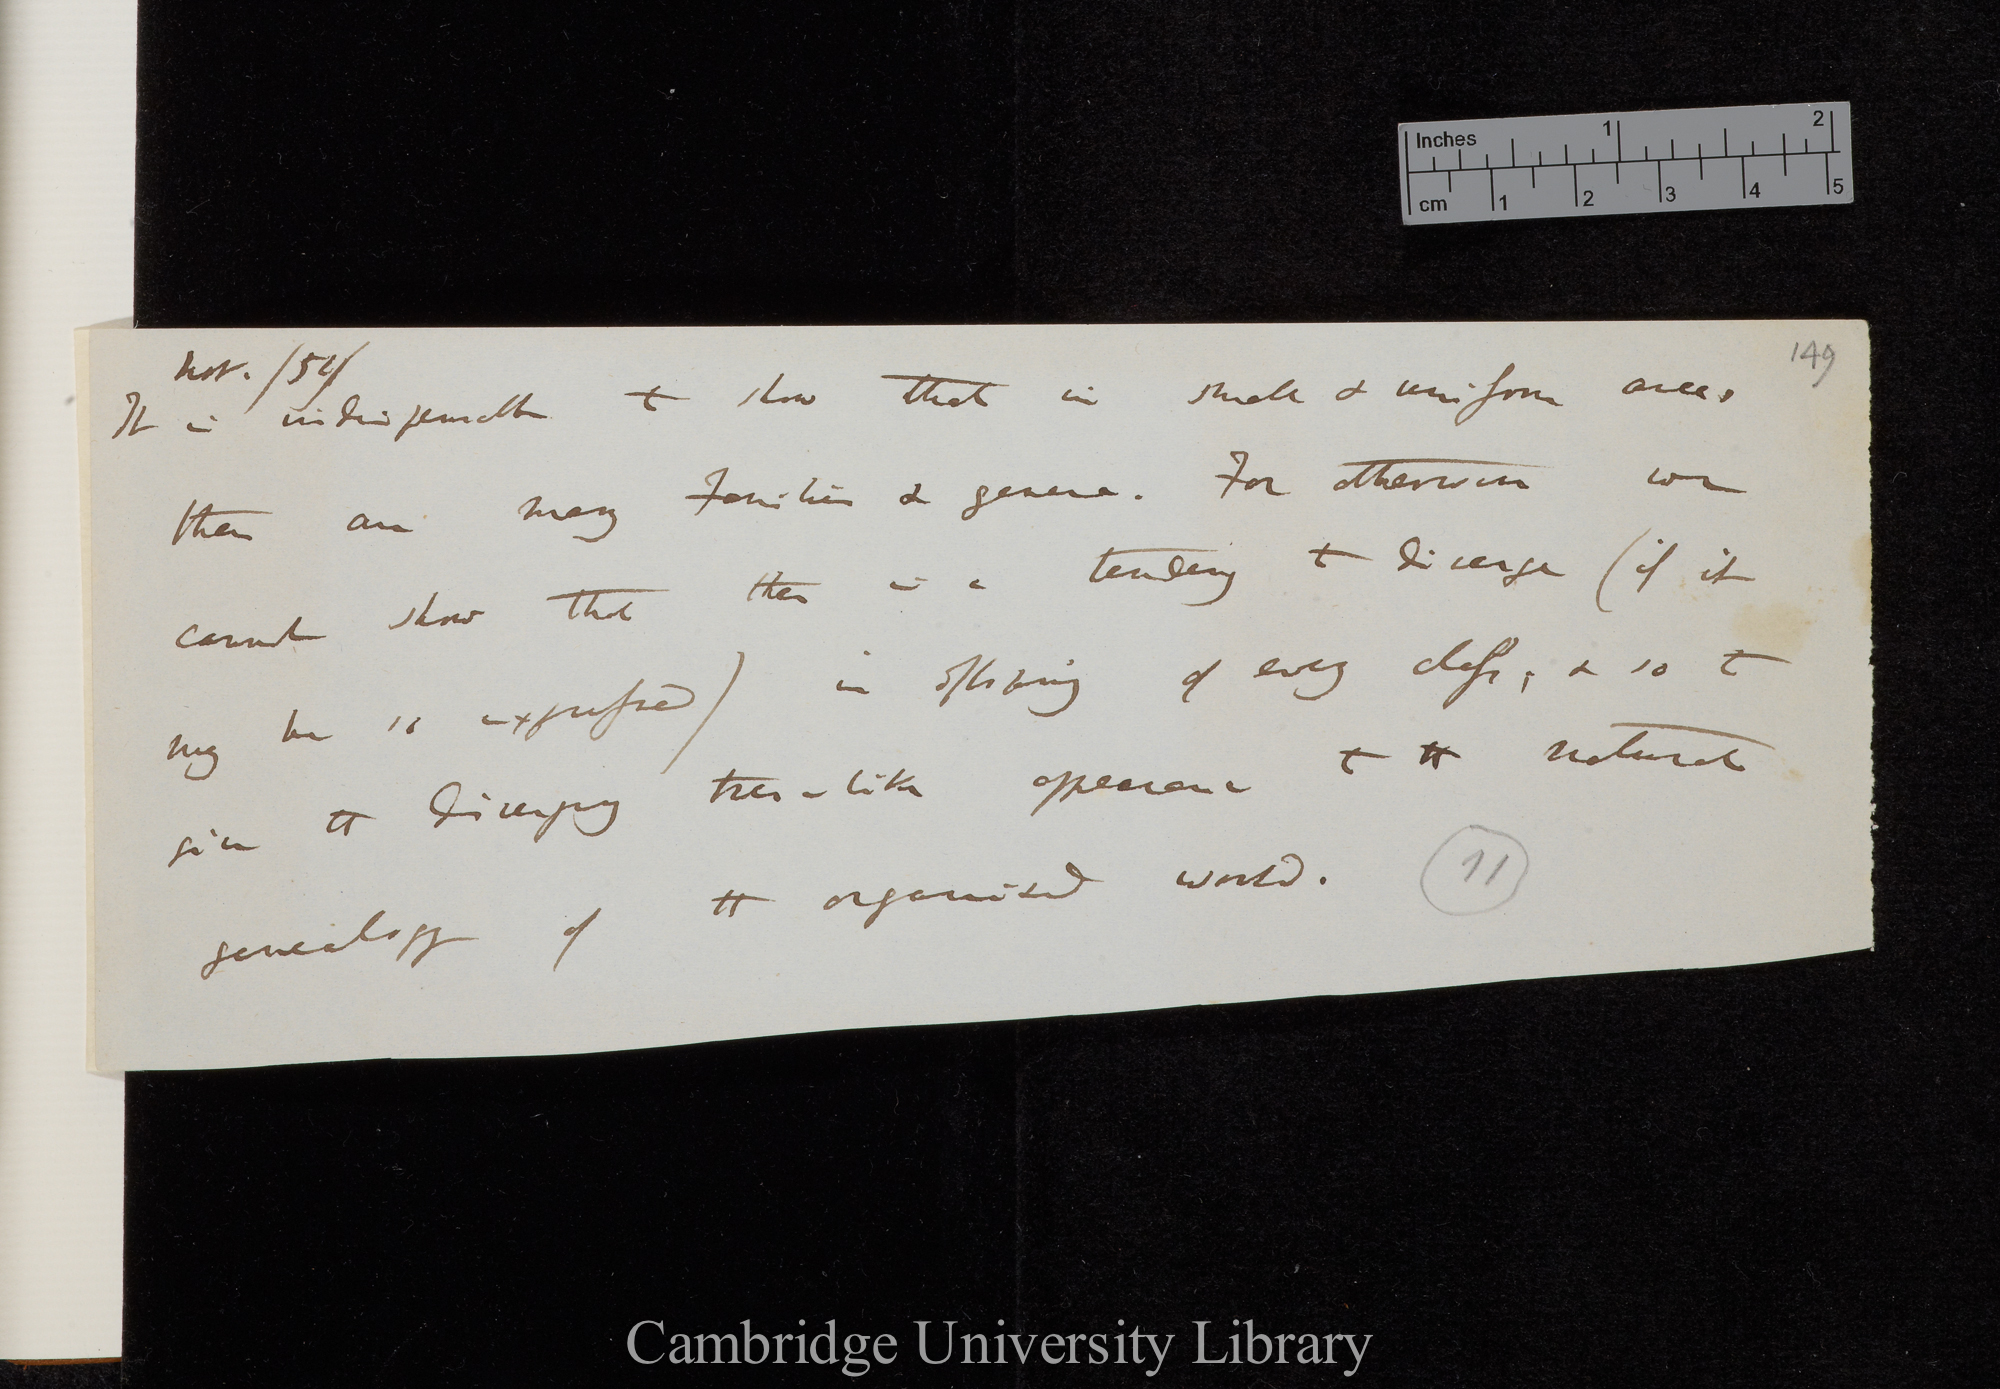 149
Nov. /54/
It is indispensable to show that in small & uniform areas
there are many Families & genera. For otherwise we
cannot show that there is a tendency to diverge (if it
may be so expressed) in offspring of every class; & so to
give the diverging tree-like appearance to the natural
genealogy of the organised world.
11
Inches 1 2
cm 1 2 3 4 5
Cambridge University Library